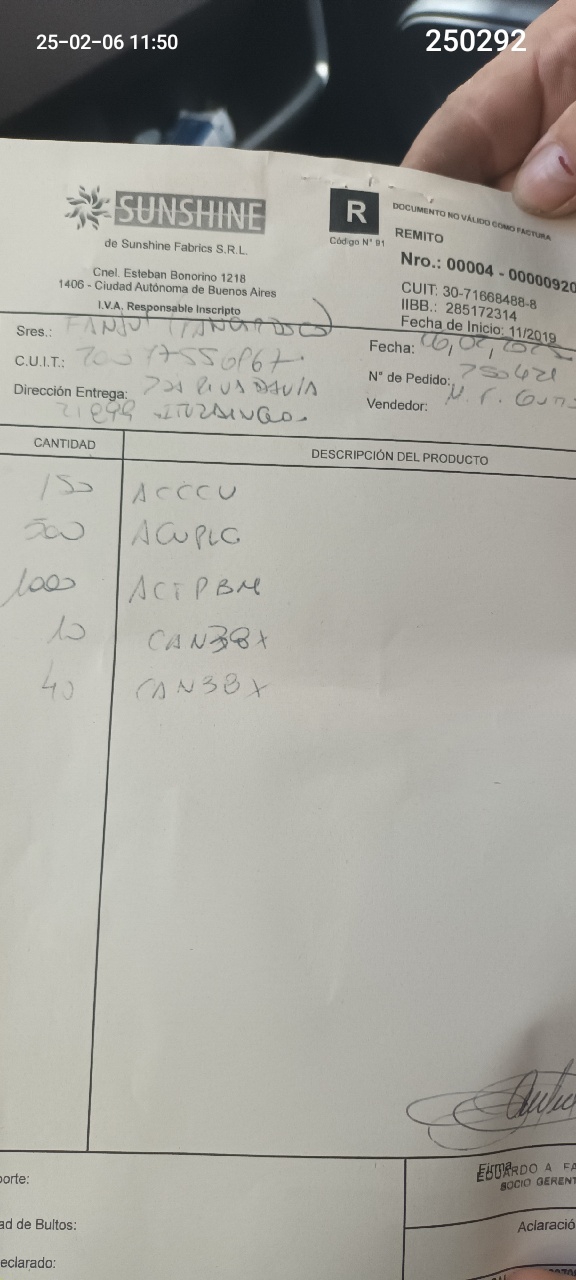 25-02-06 11:50
250292
SUNSHINE
de Sunshine Fabrics S.R.L.
Cnel. Esteban Bonorino 1218
1406 - Ciudad Autónoma de Buenos Aires
I.V.A. Responsable Inscripto
R
Código N° 91
DOCUMENTO NO VÁLIDO COMO FACTURA
REMITO
Nro.: 00004 - 00000920
CUIT: 30-71668488-8
IIBB.: 285172314
Fecha de Inicio: 11/2019
Sres.:
C.U.I.T.:
Dirección Entrega: RIVADAVIA
21899 ITUZAINGO
Fecha:
N° de Pedido:
Vendedor:
CANTIDAD DESCRIPCIÓN DEL PRODUCTO
150 ACCCU
500 ACUPLC
1000 ACTPBM
10 CAN38X
40 CAN38X
Firma
EDUARDO A. FA
SOCIO GERENT
Aclaració
orte:
ad de Bultos:
eclarado: